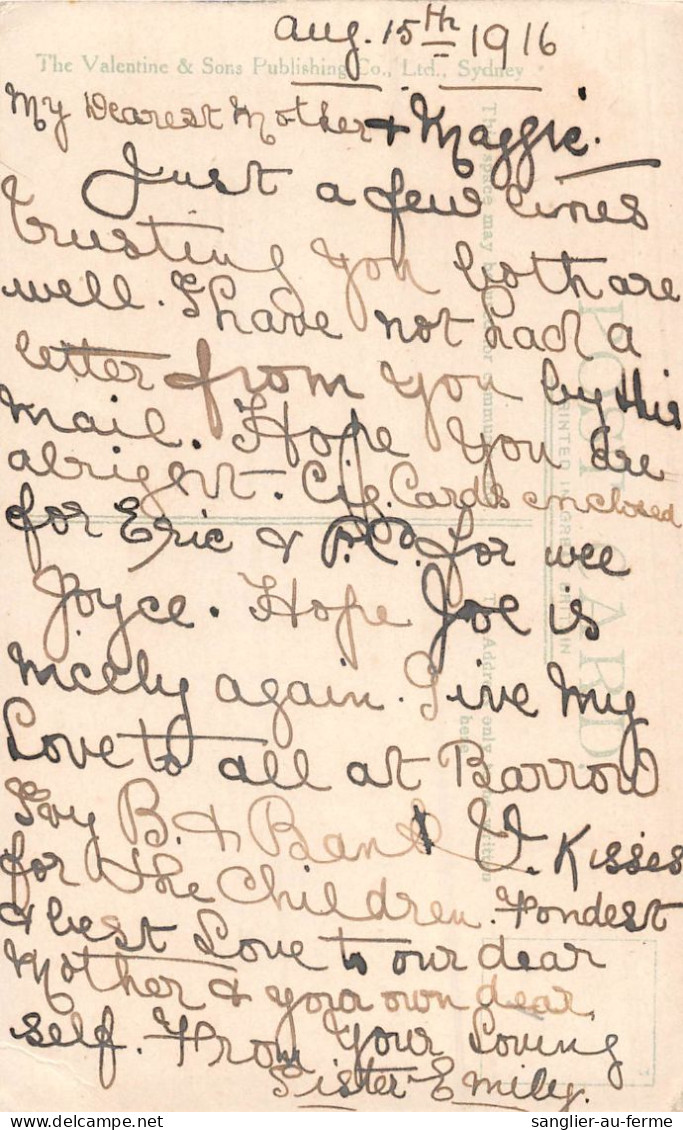 Aug. 15th 1916
The Valentine & Sons Publishing Co., Ltd., Sydney
My Dearest Mother & Maggie.
Just a few lines
trusting you both are
well. I have not had a
letter from you by this
mail. Hope you are
alright. Cig. Cards enclosed
for Eric & P.C. for wee
Joyce. Hope Joe is
nicely again. Give my
Love to all at Barrow
B. & V. Kisses
for the Children. Fondest
& best Love to our dear
Mother & your own dear
self. From Your Loving
Sister Emily.
POST CARD.
PRINTED IN GREAT BRITAIN
sanglier-au-ferme